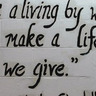 a living by w
make a life
we give."